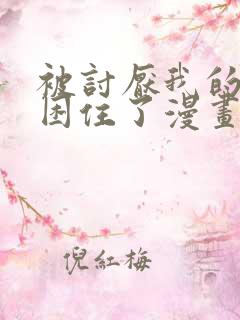 被討厭我的
困住了漫畫
倪紅梅